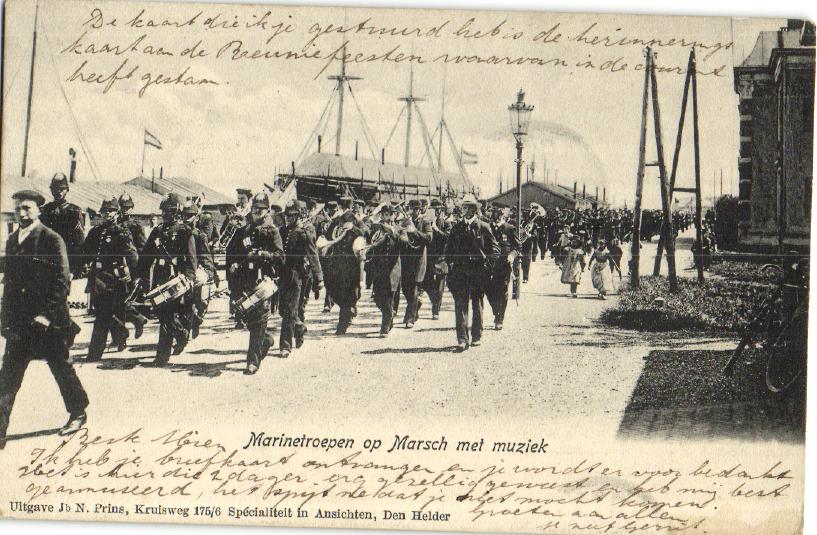 De kaart die ik je gestuurd heb is de herinnerings
kaart aan de Reuniefeesten waarvan in de courant
heeft gestaan.
Marinetroepen op Marsch met muziek
Ik heb je briefkaart ontvangen en je wordt er voor bedankt
het is hier die dagen erg gezellig geweest en heb mij best
geamuseerd, het spijt me dat je niet mocht komen.
Groeten aan allen
Uitgave Jb N. Prins, Kruisweg 175/6 Spécialiteit in Ansichten, Den Helder